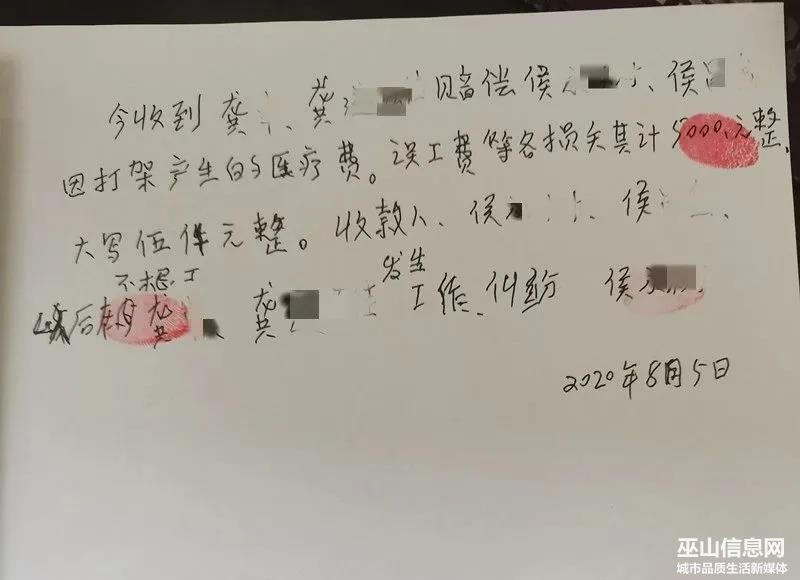 今收到 龚、龚 赔偿侯、侯
因打架产生的医疗费。误工费等各损失共计5000元整、
大写伍仟元整。收款人、侯、侯、
不想 发生
后 龚、龚 工 纠纷 侯
2020年8月5日
巫山信息网
城市品质生活新媒体